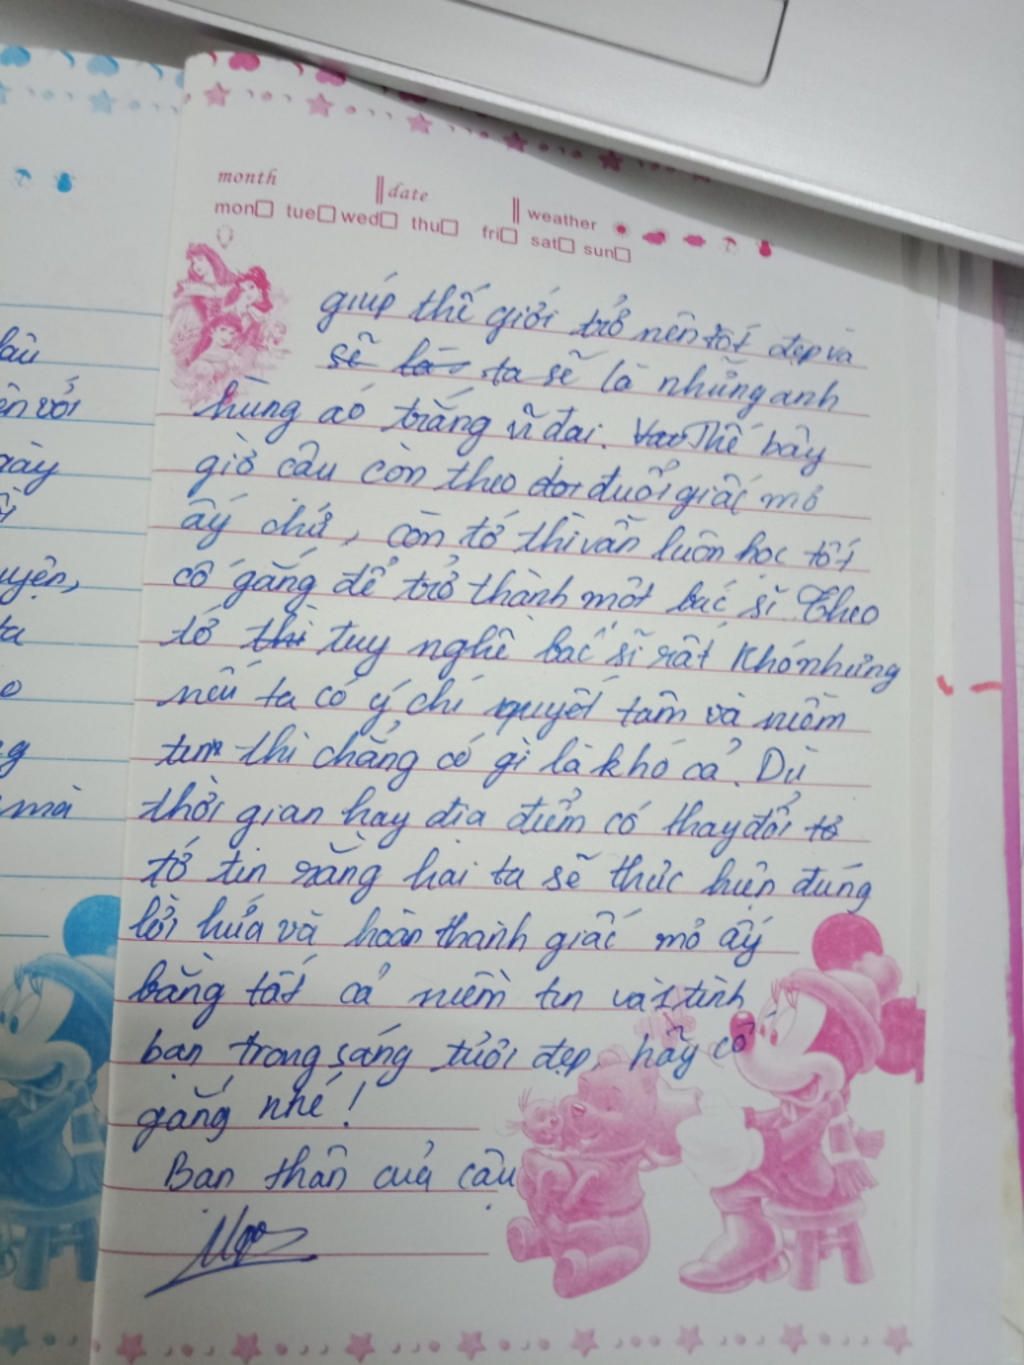 month date weather
mon tue wed thu fri sat sun
giúp thế giới trở nên tốt đẹp và
sẽ là ta sẽ là những anh
hùng áo trắng vĩ đại. Thế bây
giờ cậu còn theo đuổi giấc mơ
ấy chứ, còn tớ thì vẫn luôn học tốt
cố gắng để trở thành một bác sĩ. Theo
tớ thì tuy nghề bác sĩ rất khó nhưng
nếu ta có ý chí quyết tâm và niềm
tin thì chẳng có gì là khó cả. Dù
thời gian hay địa điểm có thay đổi tớ
tớ tin rằng hai ta sẽ thực hiện đúng
lời hứa và hoàn thành giấc mơ ấy
bằng tất cả niềm tin và tình
bạn trong sáng tươi đẹp, hãy cố
gắng nhé!
Bạn thân của cậu
ên với
ày
uyện,
ta
o
g
mà